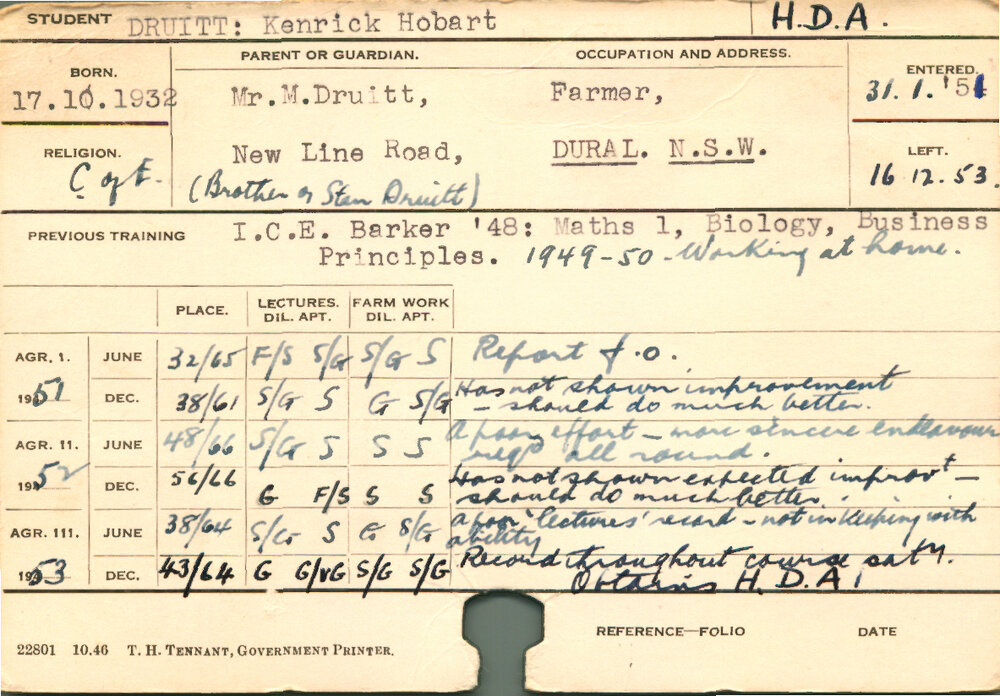 STUDENT DRUITT: Kenrick Hobart H.D.A.
BORN. PARENT OR GUARDIAN. OCCUPATION AND ADDRESS. ENTERED.
17.10.1932 Mr.M.Druitt, Farmer, 31.1.'51
RELIGION. New Line Road, DURAL. N.S.W. LEFT.
C of E. (Brother of Stan Druitt) 16 12.53.
PREVIOUS TRAINING I.C.E. Barker '48: Maths 1, Biology, Business
Principles. 1949-50 - Working at home.
PLACE. LECTURES. FARM WORK
DIL. APT. DIL. APT.
AGR. I. JUNE 32/65 F/S S/G S/G S Report f.o.
1951 DEC. 38/61 S/G S G S/G Has not shown improvement
- should do much better.
AGR. II. JUNE 48/66 S/G S S S A poor effort - more sincere endeavour
reqd all round.
1952 DEC. 56/66 G F/S S S Has not shown expected improvt -
should do much better
AGR. III. JUNE 38/64 S/G S G S/G A poor 'lectures' record - not in keeping with
ability
1953 DEC. 43/64 G G/VG S/G S/G Record throughout course saty.
Obtains H.D.A.
REFERENCE—FOLIO DATE
22801 10.46 T. H. TENNANT, GOVERNMENT PRINTER.